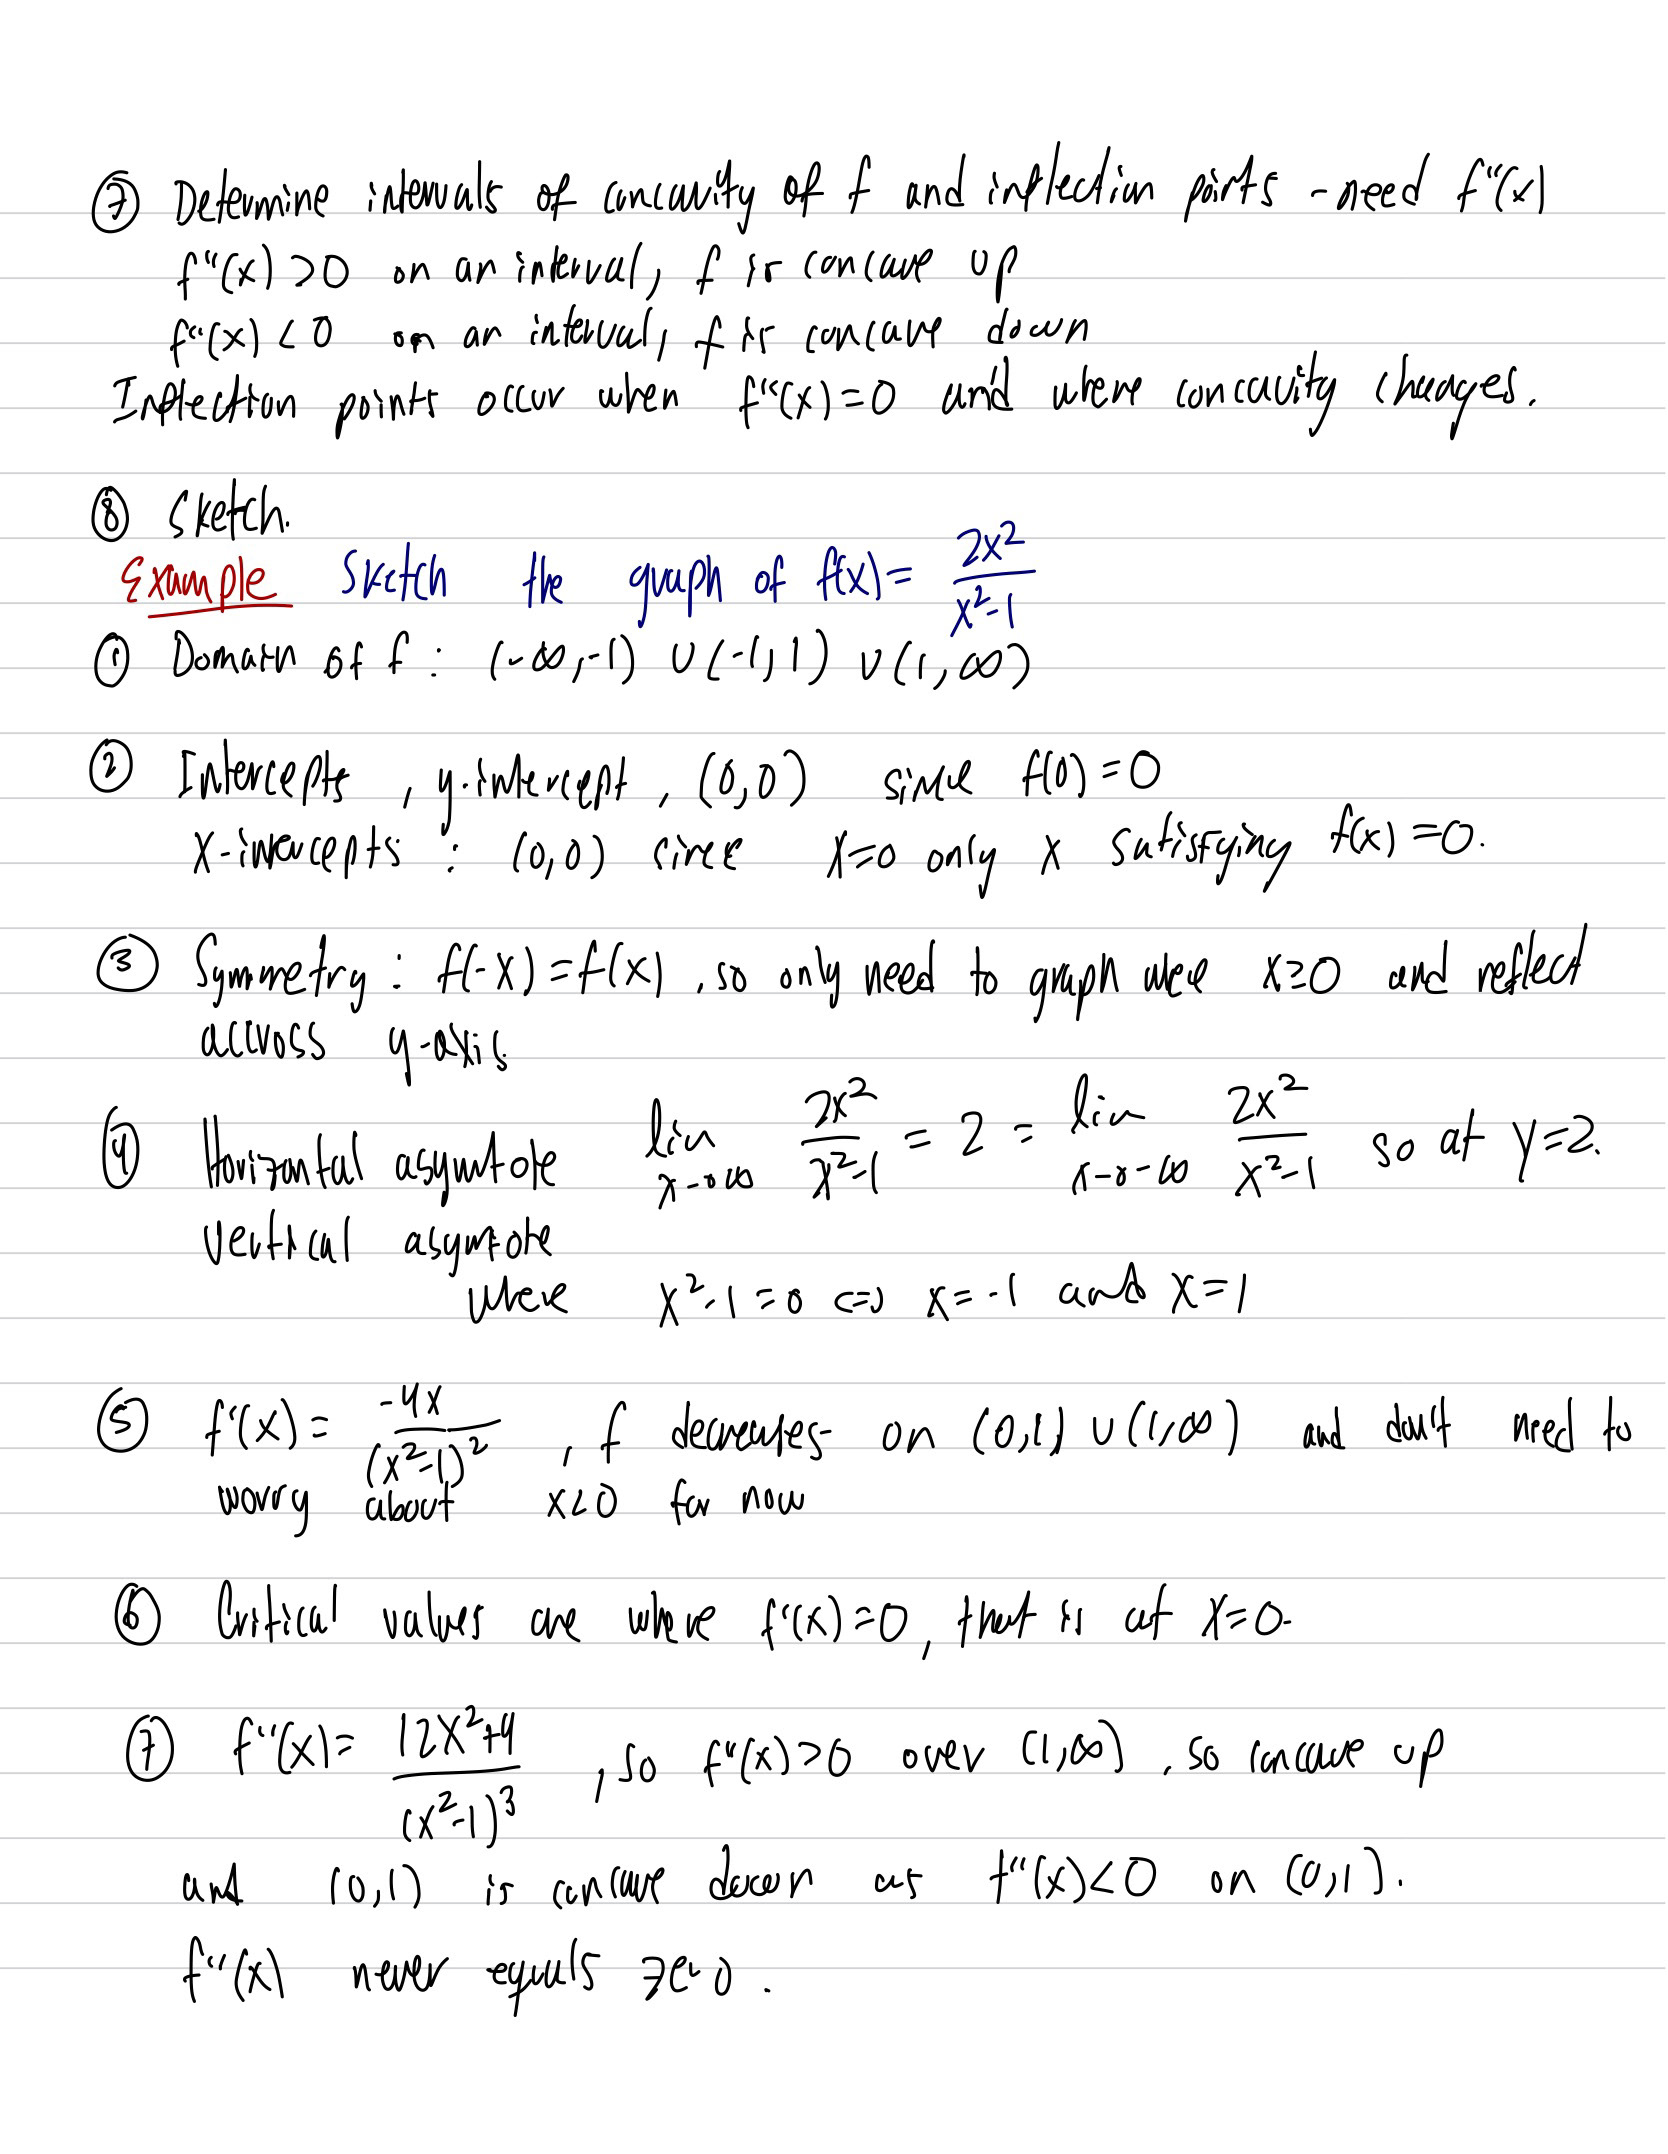 ⑦ Determine intervals of concavity of f and inflection points - need f''(x)
f''(x) > 0 on an interval, f is concave up
f''(x) < 0 on an interval, f is concave down
Inflection points occur when f''(x) = 0 and where concavity changes.
⑧ Sketch.
Example Sketch the graph of f(x) = 2x²/(x²-1)
① Domain of f : (-∞,-1) ∪ (-1,1) ∪ (1,∞)
② Intercepts , y-intercept , (0,0) since f(0) = 0
x-intercepts : (0,0) since x=0 only x satisfying f(x) = 0.
③ Symmetry : f(-x) = f(x) , so only need to graph where x≥0 and reflect
accross y-axis
④ Horizontal asymtote lim x→∞ 2x²/(x²-1) = 2 = lim x→-∞ 2x²/(x²-1) so at y=2.
vertical asymtote
where x²-1=0 ⇔ x=-1 and x=1
⑤ f'(x) = -4x/(x²-1)² , f decreases on (0,1) ∪ (1,∞) and don't need to
worry about x<0 for now
⑥ Critical values are where f'(x)=0, that is at x=0.
⑦ f''(x) = (12x²+4)/(x²-1)³ , so f''(x)>0 over (1,∞) , so concave up
and (0,1) is concave down as f''(x)<0 on (0,1).
f''(x) never equals zero.